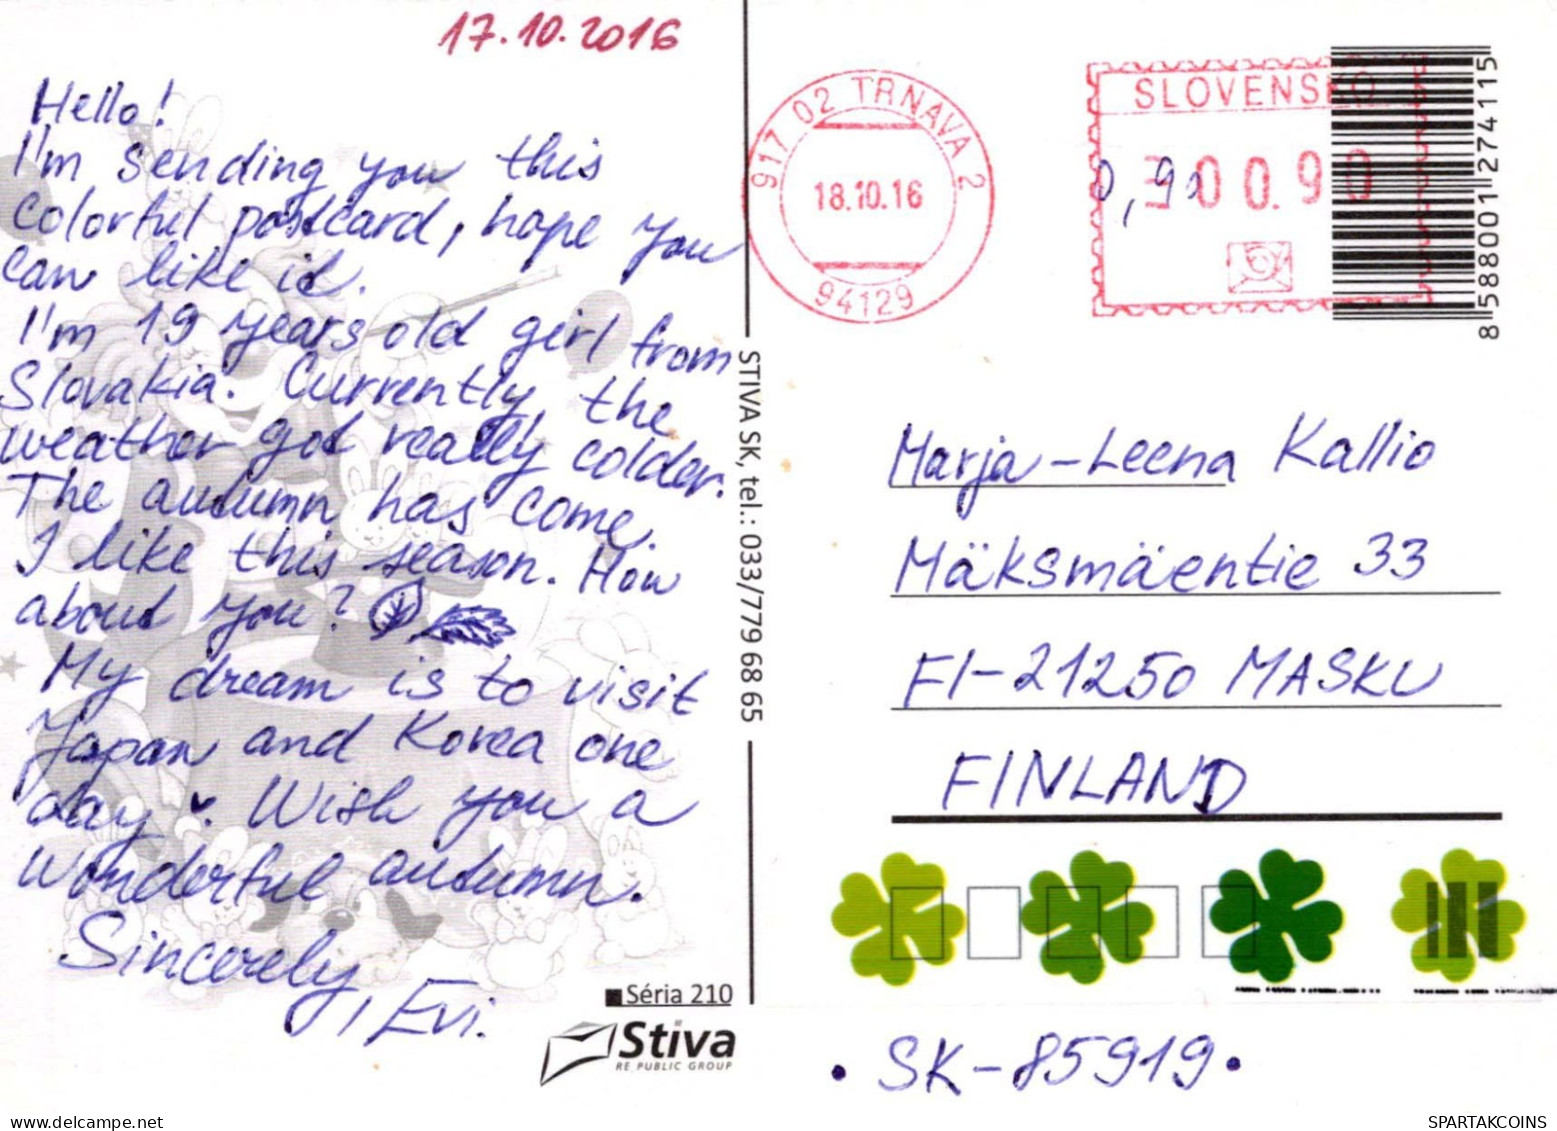 17.10.2016
Hello!
I'm sending you this
colorful postcard, hope you
can like it.
I'm 19 years old girl from
Slovakia. Currently, the
weather got really colder.
The autumn has come.
I like this season. How
about you?
My dream is to visit
Japan and Korea one
day. Wish you a
wonderful autumn.
Sincerely,
Evi.
Séria 210
Stiva
RE PUBLIC GROUP
STIVA SK, tel.: 033/779 68 65
917 02 TRNAVA 2
18.10.16
94129
SLOVENSKO
00.90
0,90
8 588001 274115
Marja-Leena Kallio
Mäksmäentie 33
FI-21250 MASKU
FINLAND
• SK-85919 •
SPARTAKCOINS